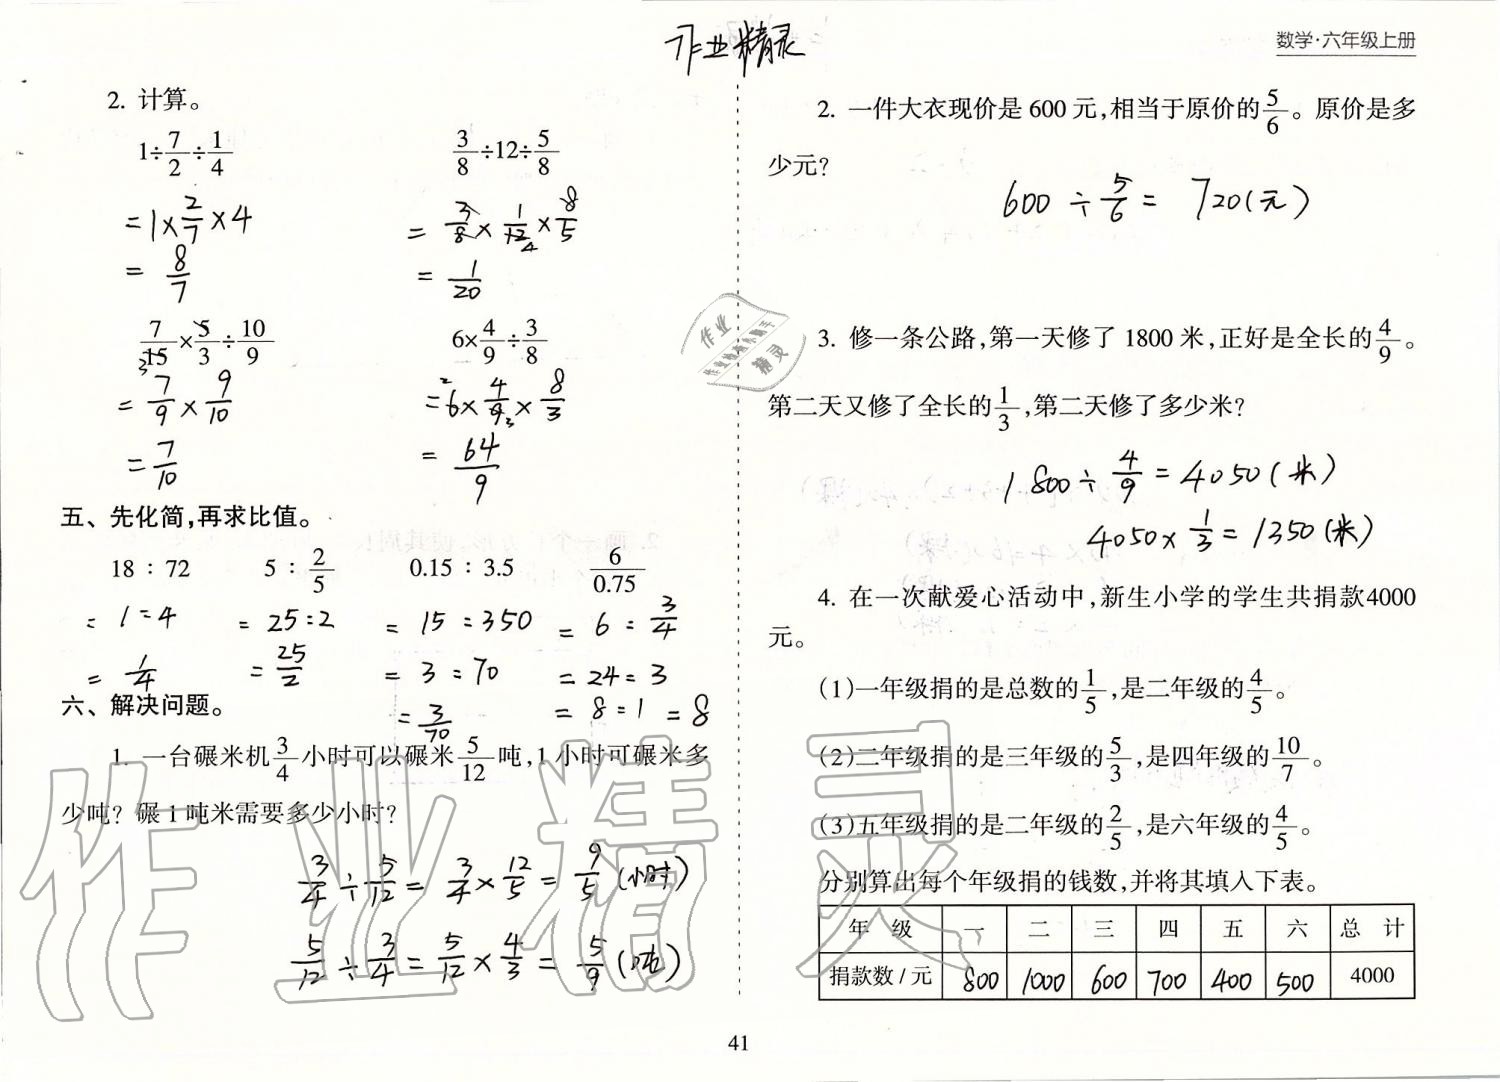 作业精灵
数学·六年级上册
2. 计算。
1÷7/2÷1/4
=1×2/7×4
=8/7
3/8÷12÷5/8
=3/8×1/12×8/5
=1/20
7/15×5/3÷10/9
=7/9×9/10
=7/10
6×4/9÷3/8
=6×4/9×8/3
=64/9
五、先化简,再求比值。
18∶72
=1:4
=1/4
5∶2/5
=25:2
=25/2
0.15∶3.5
=15:350
=3:70
=3/70
6/0.75
=6:3/4
=24:3
=8:1=8
六、解决问题。
1. 一台碾米机3/4小时可以碾米5/12吨,1小时可碾米多
少吨? 碾1吨米需要多少小时?
3/4÷5/12=3/4×12/5=9/5(小时)
5/12÷3/4=5/12×4/3=5/9(吨)
2. 一件大衣现价是600元,相当于原价的5/6。原价是多
少元?
600÷5/6=720(元)
3. 修一条公路,第一天修了1800米,正好是全长的4/9。
第二天又修了全长的1/3,第二天修了多少米?
1800÷4/9=4050(米)
4050×1/3=1350(米)
4. 在一次献爱心活动中,新生小学的学生共捐款4000
元。
(1)一年级捐的是总数的1/5,是二年级的4/5。
(2)二年级捐的是三年级的5/3,是四年级的10/7。
(3)五年级捐的是二年级的2/5,是六年级的4/5。
分别算出每个年级捐的钱数,并将其填入下表。
年 级 一 二 三 四 五 六 总 计
捐款数/元 800 1000 600 700 400 500 4000
41
作业精灵
作业
精灵